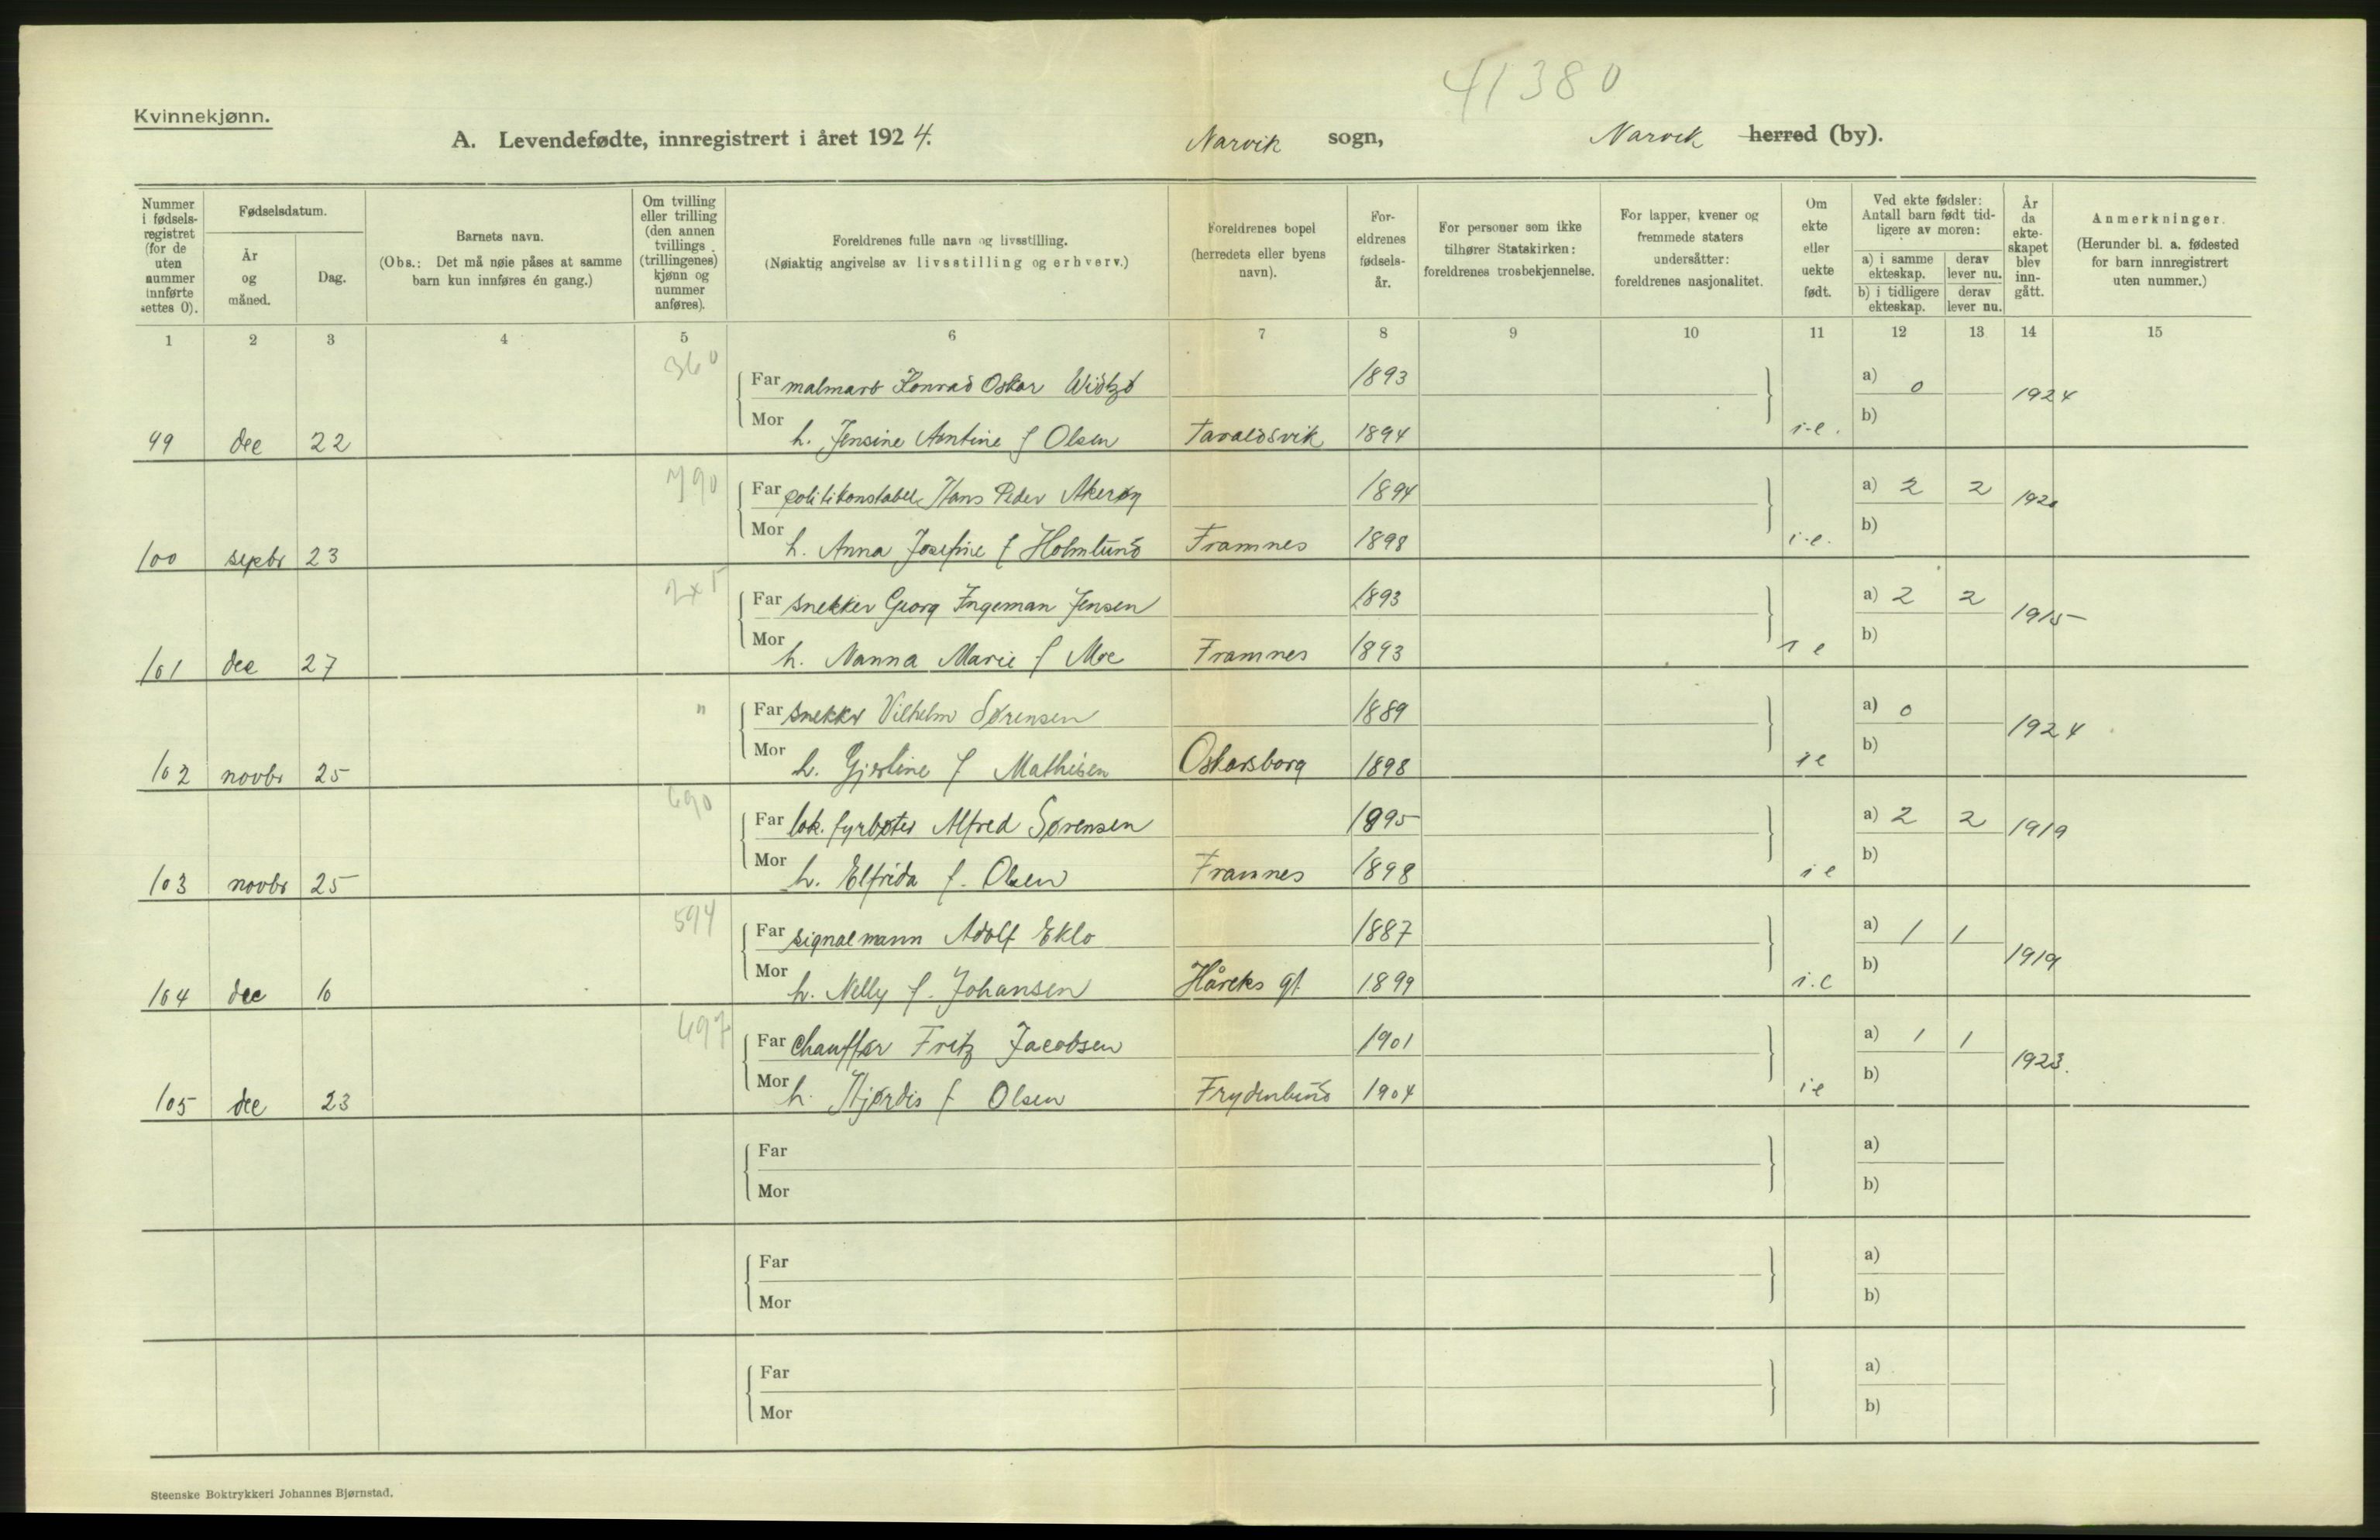 41380
Kvinnekjønn.
A. Levendefødte, innregistrert i året 1924. Narvik sogn, Narvik herred (by).
Nummer i fødsels-registret (for de uten nummer innførte settes 0).
Fødselsdatum.
År og måned.
Dag.
Barnets navn.
(Obs.: Det må nøie påses at samme barn kun innføres én gang.)
Om tvilling eller trilling (den annen tvillings (trillingenes) kjønn og nummer anføres).
Foreldrenes fulle navn og livsstilling.
(Nøiaktig angivelse av livsstilling og erhverv.)
Foreldrenes bopel (herredets eller byens navn).
For-eldrenes fødsels-år.
For personer som ikke tilhører Statskirken: foreldrenes trosbekjennelse.
For lapper, kvener og fremmede staters undersåtter: foreldrenes nasjonalitet.
Om ekte eller uekte født.
Ved ekte fødsler: Antall barn født tid-ligere av moren:
a) i samme ekteskap. derav lever nu.
b) i tidligere ekteskap. derav lever nu.
År da ekte-skapet blev inn-gått.
Anmerkninger.
(Herunder bl. a. fødested for barn innregistrert uten nummer.)
1 2 3 4 5 6 7 8 9 10 11 12 13 14 15
360 Far malmarb Konrad Oskar 1893 a) 0 1924
99 dec 22 Mor h. Jensine Amtine f Olsen Taraldsvik 1894 i-e. b)
790 Far politikonstabel Hans Peder Akerøy 1894 a) 2 2 1920
100 sepbr 23 Mor h. Anna Josefine f Holmlund Framnes 1898 i-e. b)
Far snekker Georg Ingeman Jensen 1893 a) 2 2 1915
101 dec 27 Mor h. Nanna Marie f Moe Framnes 1893 i e b)
" Far snekkr Vilhelm Sørensen 1889 a) 0 1924
102 novbr 25 Mor h. Gjertine f Mathisen Oskarsborg 1898 i e b)
690 Far lok. fyrbøter Alfred Sørensen 1895 a) 2 2 1919
103 novbr 25 Mor h. Elfrida f. Olsen Framnes 1898 i e b)
594 Far signalmann Adolf Eklo 1887 a) 1 1 1919
104 dec 10 Mor h. Nelly f. Johansen Håreks gt 1899 i.e b)
697 Far Chauffør Fritz Jacobsen 1901 a) 1 1 1923.
105 dec 23 Mor h. Hjørdis f Olsen Frydenlund 1904 i e b)
Far a)
Mor b)
Far a)
Mor b)
Far a)
Mor b)
Steenske Boktrykkeri Johannes Bjørnstad.